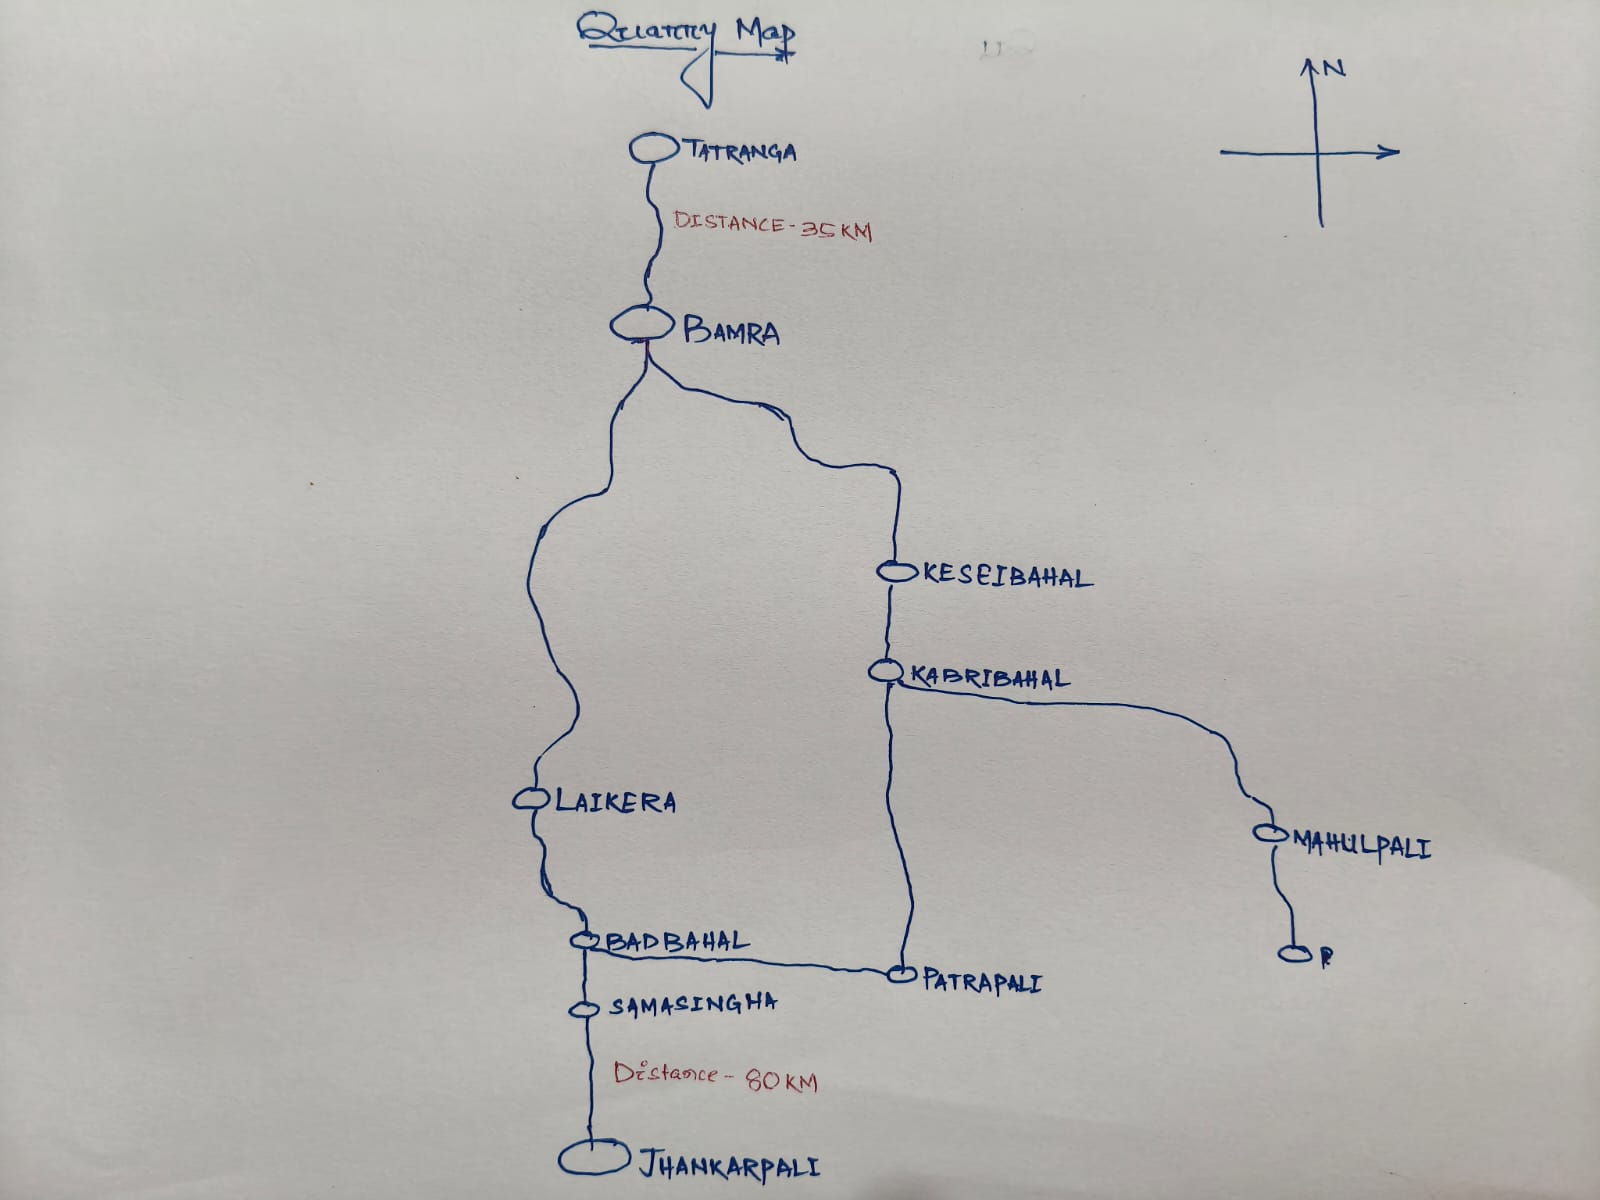 Quarry Map
N
TATRANGA
DISTANCE - 35 KM
BAMRA
KESEIBAHAL
KABRIBAHAL
LAIKERA
MAHULPALI
BADBAHAL
P
PATRAPALI
SAMASINGHA
Distance - 80 KM
JHANKARPALI